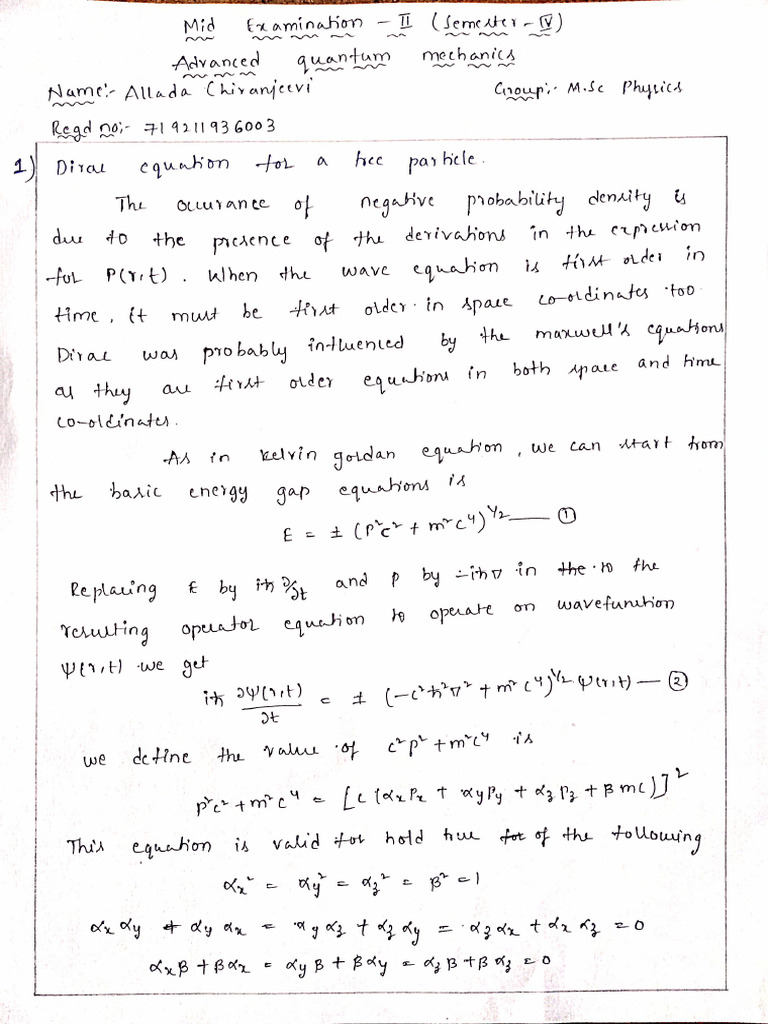 Mid Examination - II (Semester - IV)
Advanced quantum mechanics
Name:- Allada Chiranjeevi Group:- M.Sc Physics
Regd no:- 719211936003
1) Dirac equation for a free particle.
The occurance of negative probability density is
due to the presence of the derivations in the expression
for P(r,t). When the wave equation is first order in
time, it must be first order in space co-ordinates too.
Dirac was probably influenced by the maxwell's equations
as they are first order equations in both space and time
co-ordinates.
As in kelvin gordan equation, we can start from
the basic energy gap equations is
E = ± (p²c² + m²c⁴)^1/2 — ①
Replacing E by iħ ∂/∂t and p by -iħ∇ in the to the
resulting operator equation to operate on wavefunction
ψ(r,t) we get
iħ ∂ψ(r,t)/∂t = ± (-c²ħ²∇² + m²c⁴)^1/2 ψ(r,t) — ②
we define the value of c²p² + m²c⁴ is
p²c² + m²c⁴ = [c (αx Px + αy Py + αz Pz + β mc)]²
This equation is valid for hold true for of the following
αx² = αy² = αz² = β² = 1
αx αy + αy αx = αy αz + αz αy = αz αx + αx αz = 0
αx β + β αx = αy β + β αy = αz β + β αz = 0